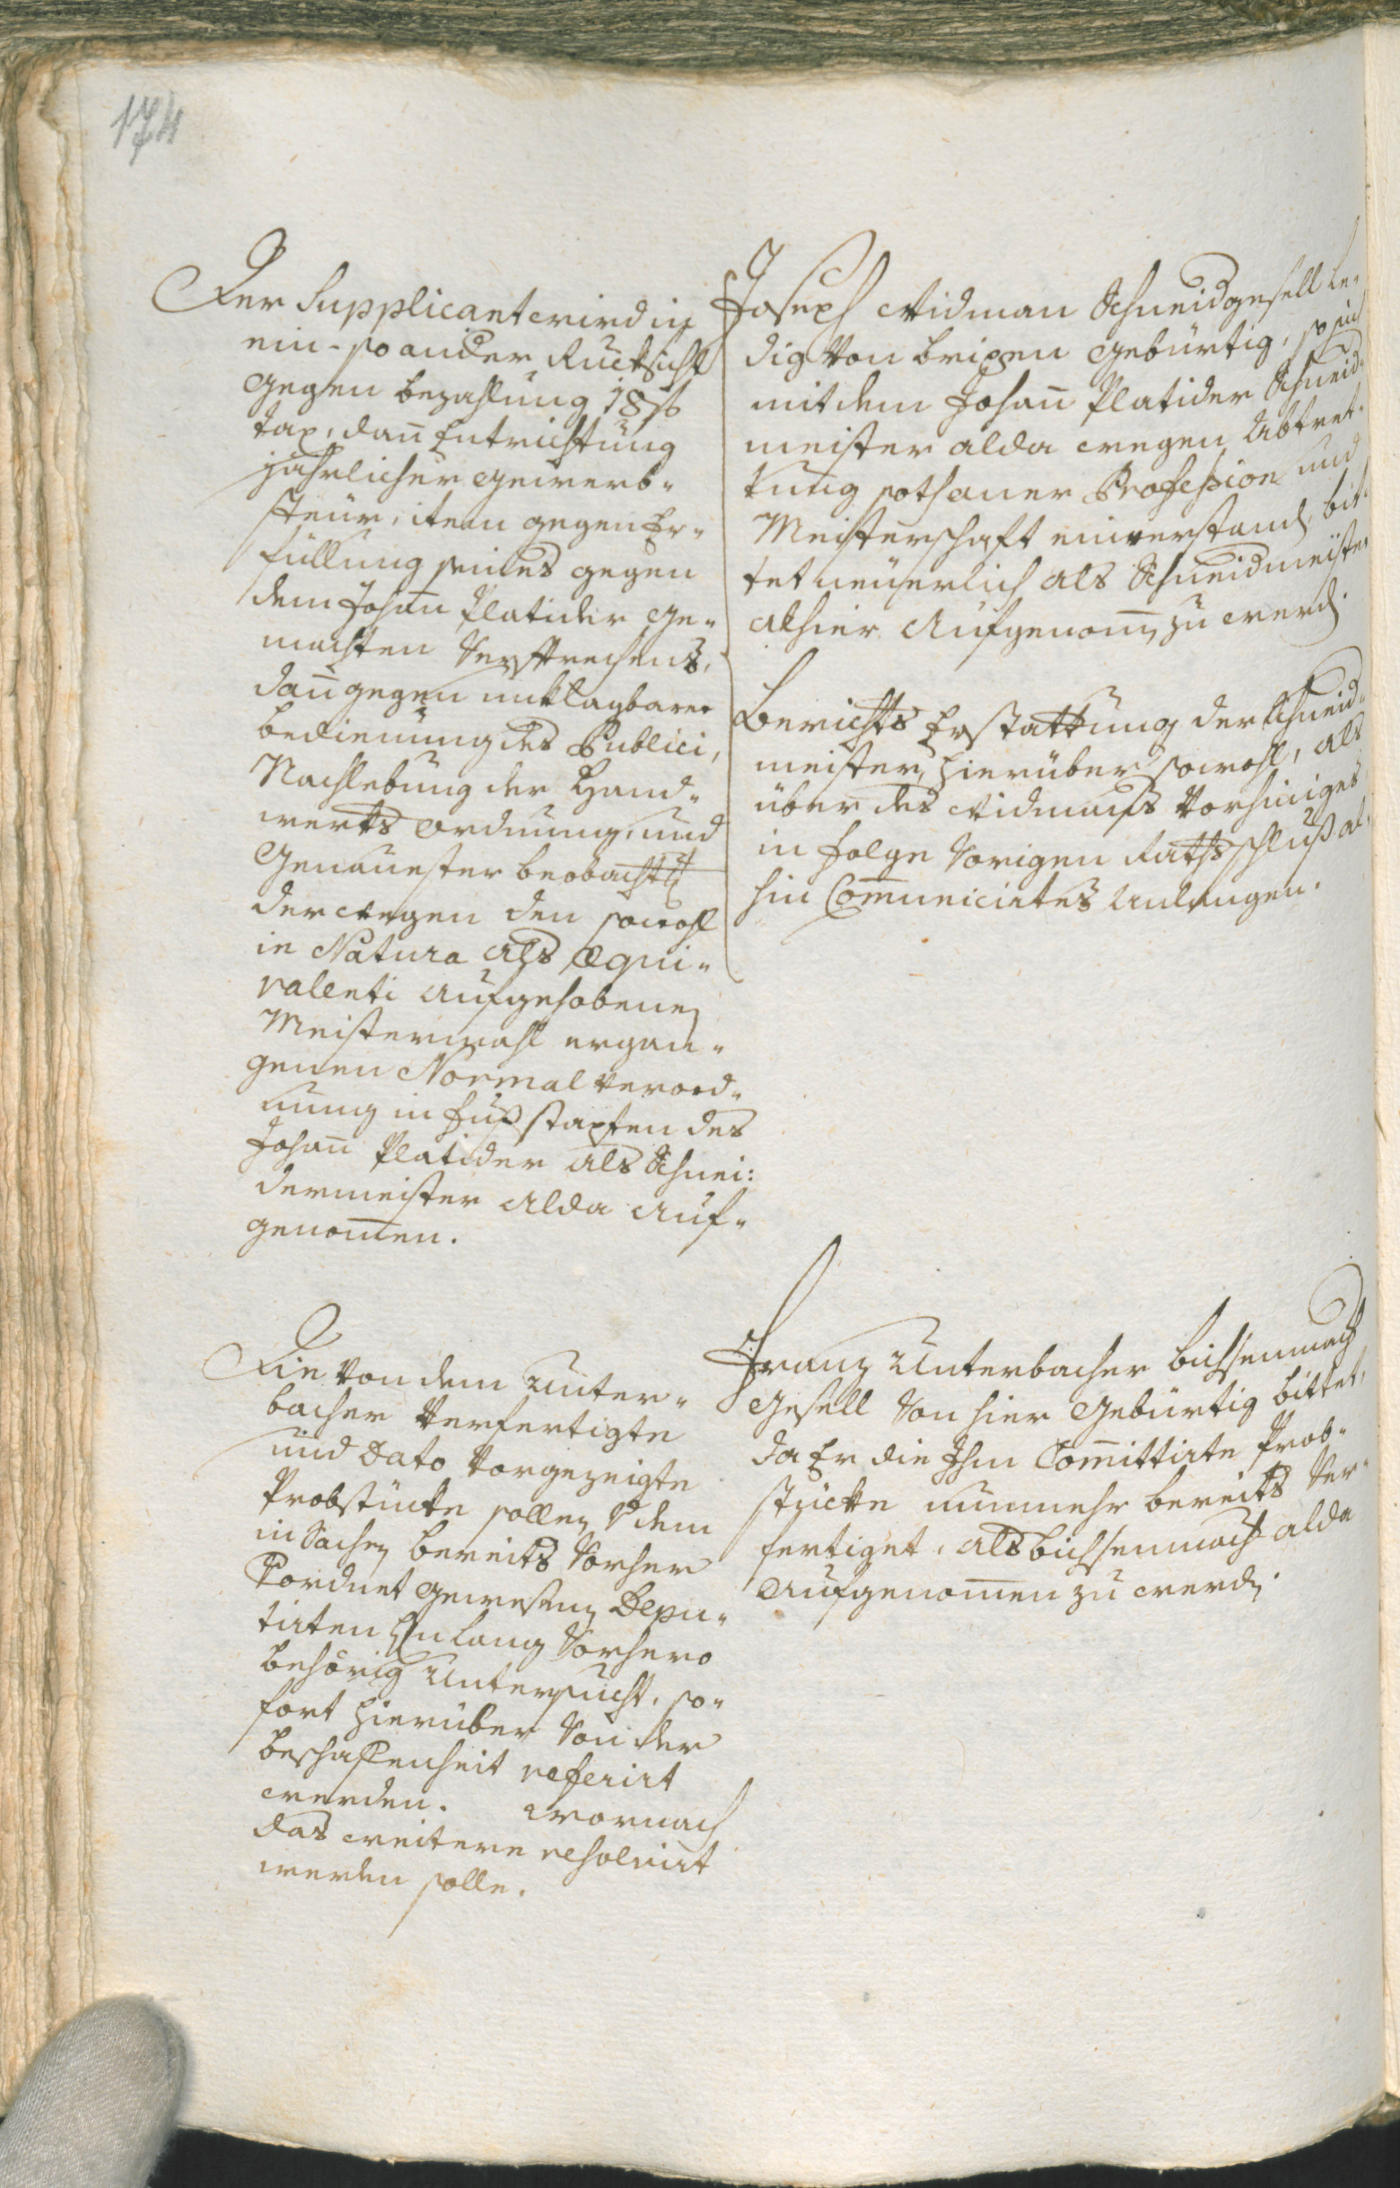 174
Der Supplicant wird in
ein- so ander Rucksicht
gegen bezahlung 18 f
tax, dan̄ Entrichtung
jährlicher gewerb-
steur, item gegen Er-
füllung seines gegen
dem Johan̄ Platider ge-
machten Versprechens,
dan̄ gegen unklagbarer
bedienung des Publici,
Nachlebung der Hand-
werks ordnung, und
Genauester beobacht
der wegen den sowohl
in Natura als Æqui-
valenti aufgehobenen
Meistermahl ergan-
genen Normal verord-
nung in fuß stapfen des
Johan̄ Platider als Schnei:
dermeister alda auf-
genom̄en.
Joseph Widman Schneidgesell le-
dig von brixen gebürtig, so sich
mit dem Johan̄ Platider Schneid-
meister alda wegen Abtret-
tung sothaner Profession und
Meisterschaft einverstand, bit-
tet neuerlich als Schneidmeister
alhier Aufgenom̄ zu werd.
Berichts Erstattung der Schneid-
meister hierüber sowohl, als
über des Widmans vorheriges
in folge Vorigen Rathsschluß
hin Com̄unicirtes Anlangen.
Die von dem Unter-
bacher verfertigte
und Dato vorgezeigte
Probstücke sollen dem
in Sachen bereits Vorher
ordnet gewesten Depu-
tirten Vorhero
behörig Untersucht, so-
fort hierüber Von der
beschaffenheit referirt
werden. Wornach
das weitere resolvirt
werden solle.
Franz Unterbacher bichsenmach
Gesell Von hier Gebürtig bittet,
da Er die Ihm Com̄ittirte Prob-
stücke nunmehr bereits Ver-
fertiget, als bichsenmach alda
Aufgenom̄en zu werd.